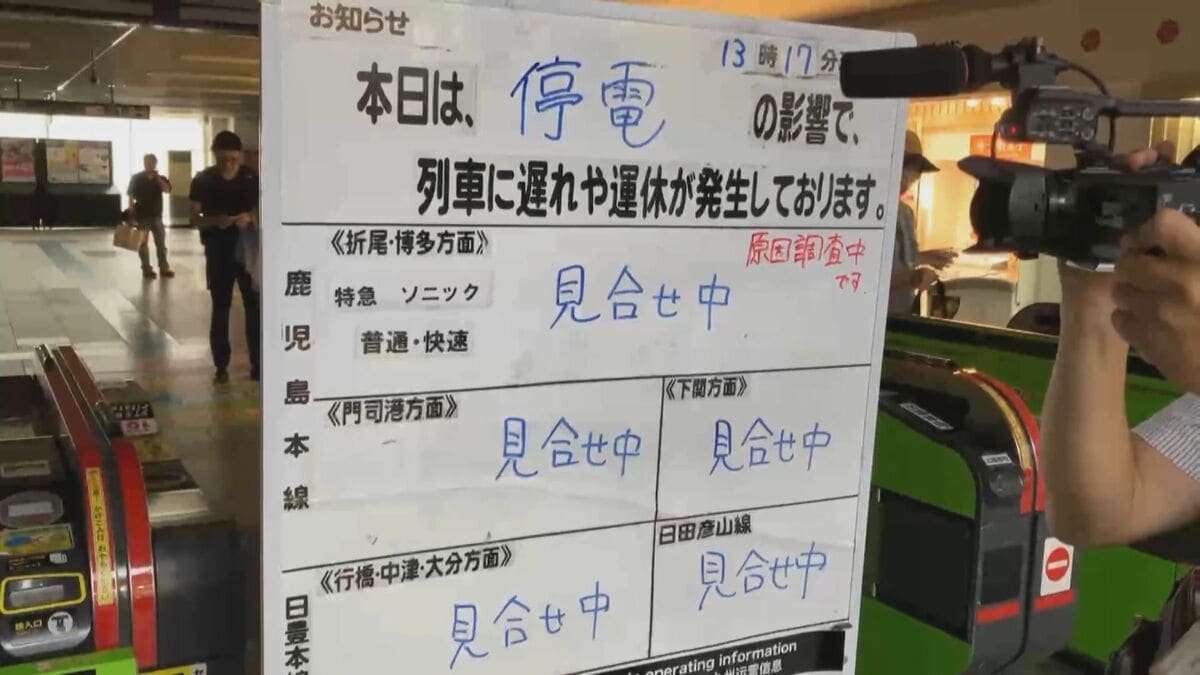 お知らせ
13時17分
本日は、停電の影響で、
列車に遅れや運休が発生しております。
鹿児島本線
《折尾・博多方面》
原因調査中
です
特急 ソニック
見合せ中
普通・快速
《門司港方面》
見合せ中
《下関方面》
見合せ中
日豊本線
《行橋・中津・大分方面》
見合せ中
日田彦山線
見合せ中
operating information
州运营信息